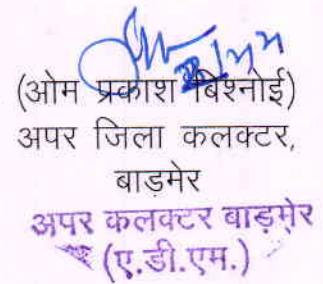 (ओम प्रकाश बिश्नोई)
अपर जिला कलक्टर,
बाड़मेर
अपर कलक्टर बाड़मेर
(ए.डी.एम.)